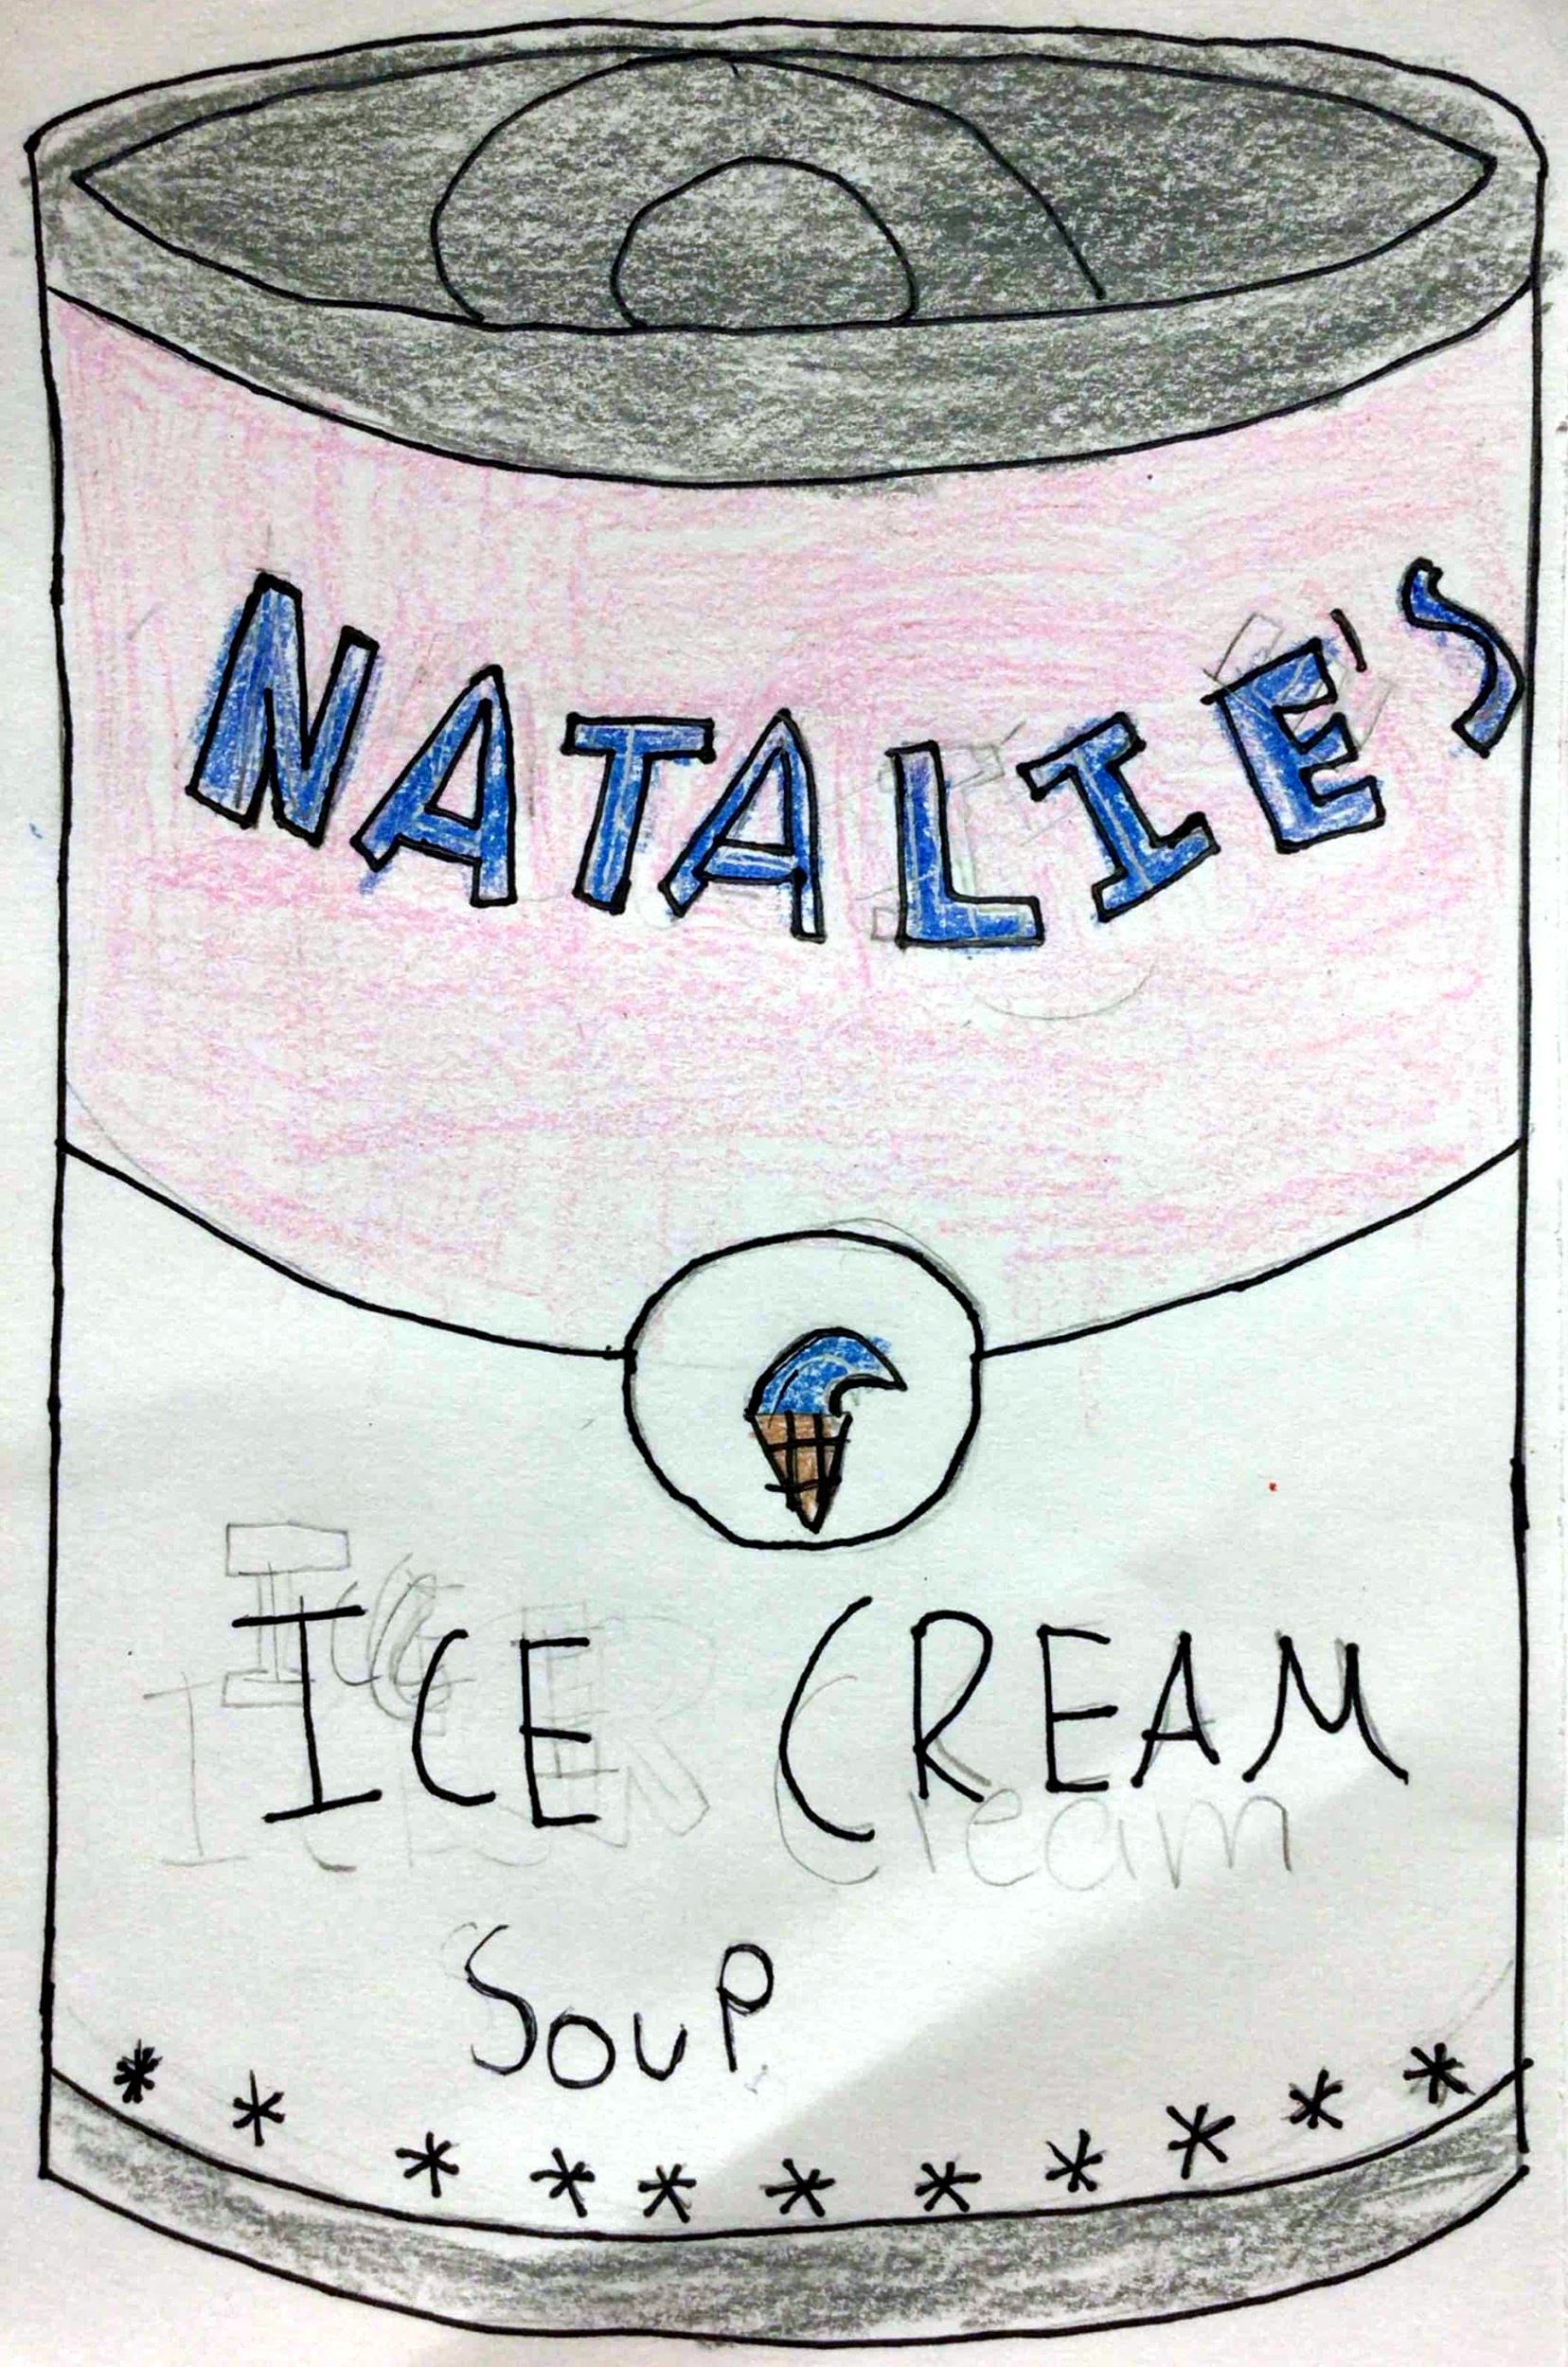 NATALIE'S
ICE CREAM
SOUP